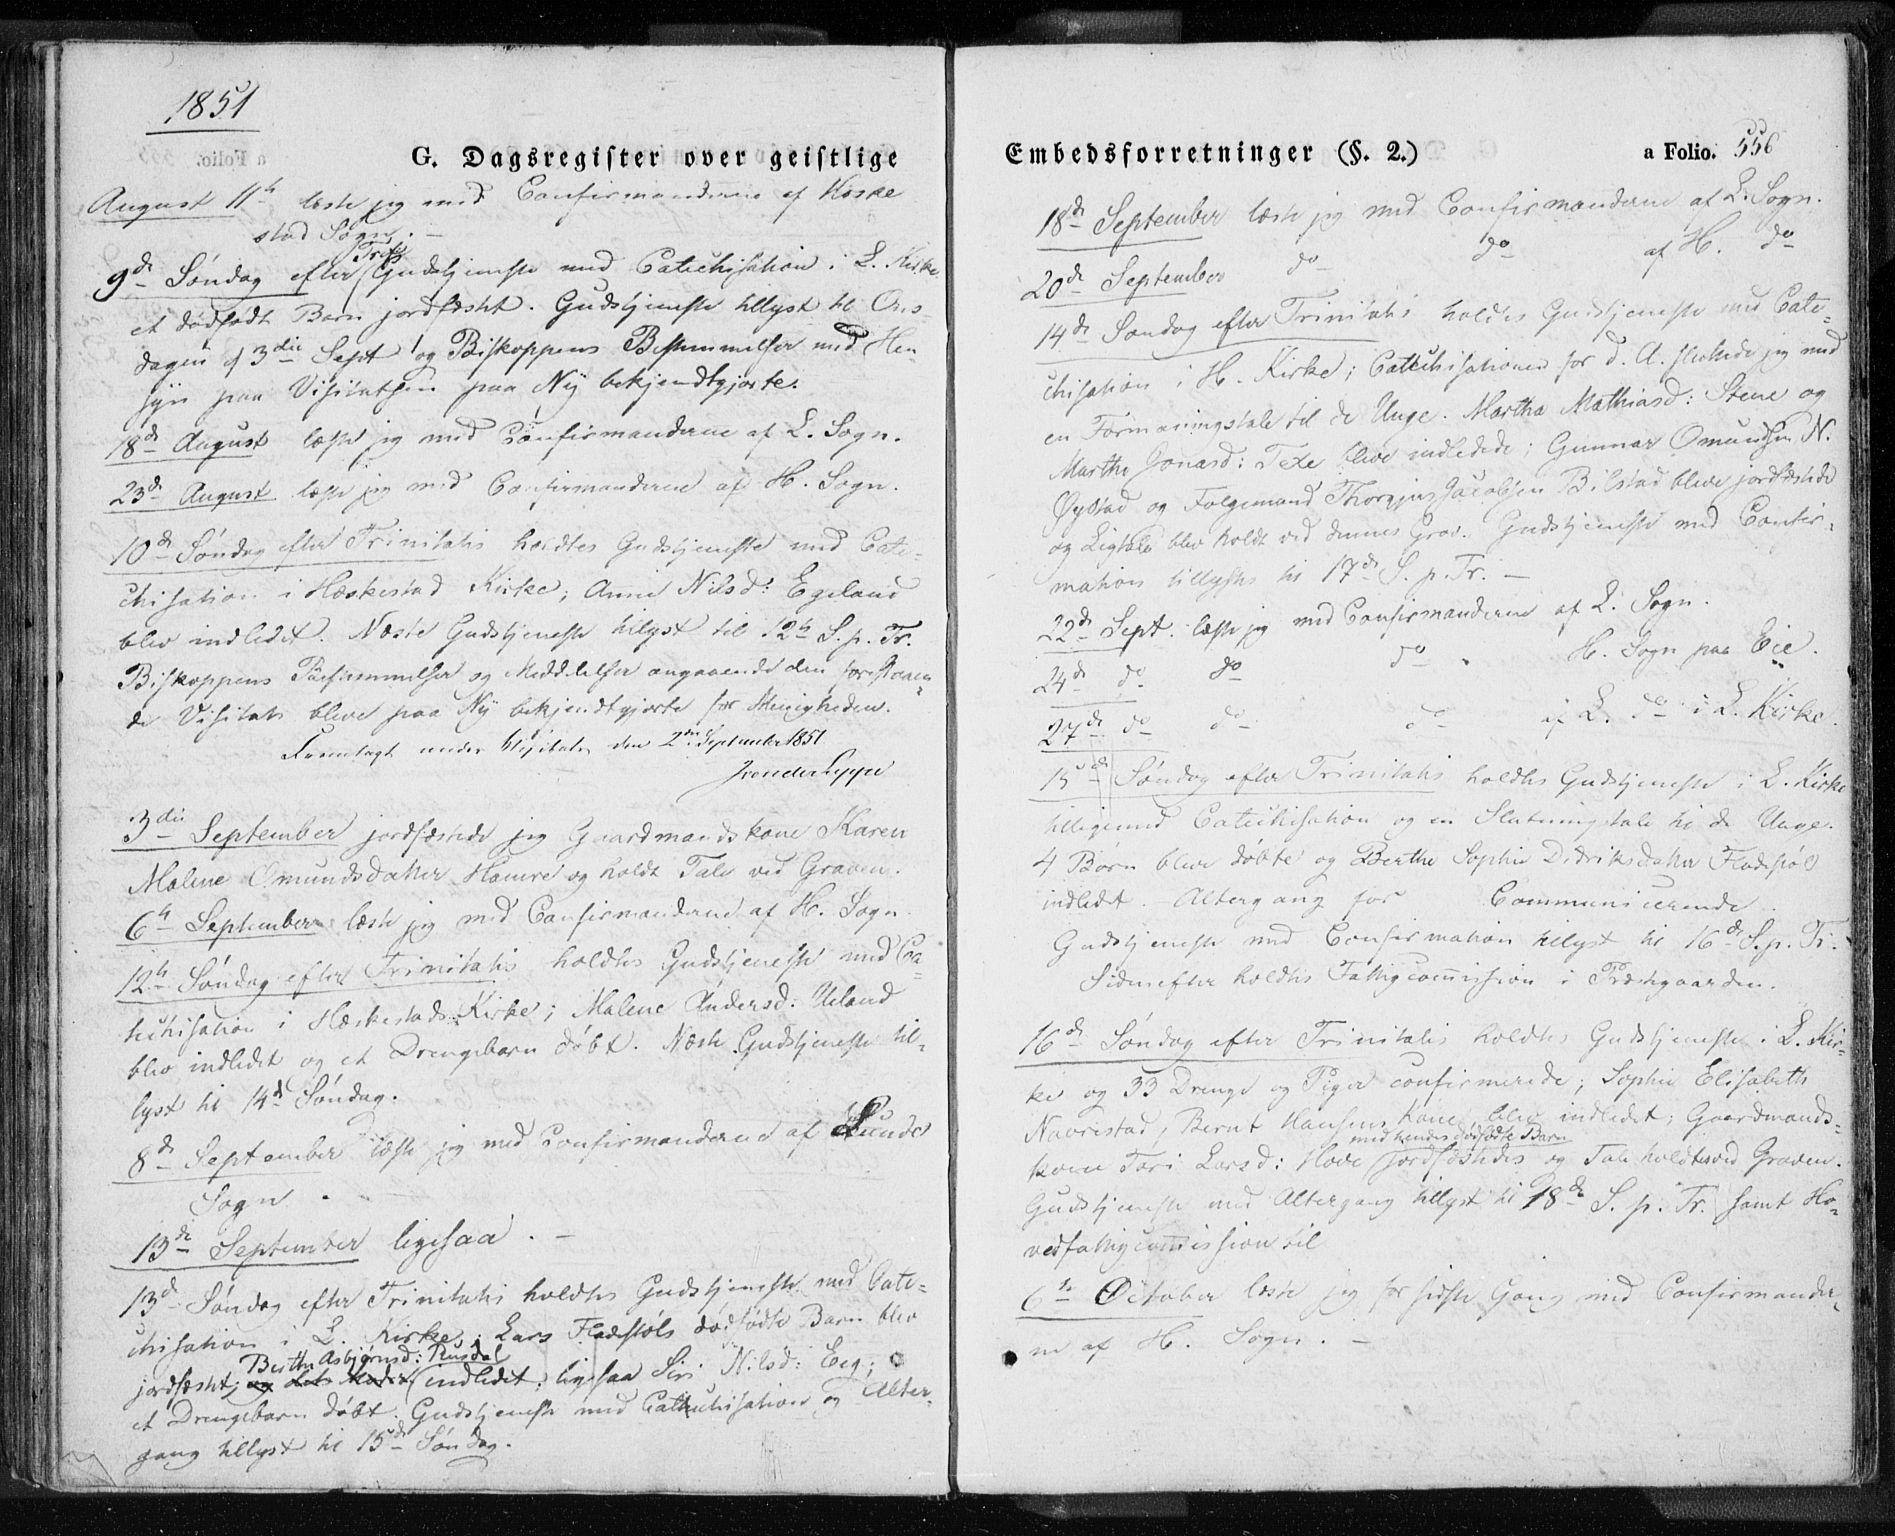 1851
G. Dagsregister over geistlige
August 11te læste jeg med Confirmanderne af Heske
stad Sogn. –
9de Søndag efter Trits Gudstjeneste med Catechisation i L. Kirke
et dødfødt Barn jordfæstet. Gudstjeneste tillyst til Ons-
dagen d 3die Sept og Biskoppens Bestemmelser med Hen
syn paa Visitatsen paa Ny bekjendtgjorte.
18de August læste jeg med Confirmanderne af L. Sogn.
23de August læste jeg med Confirmanderne af H. Sogn.
10de Søndag efter Trinitatis holdtes Gudstjeneste med Cate-
chisation i Heskestad Kirke; Anne Nilsd: Egeland
blev indledet. Næste Gudstjeneste tillyst til 12te S. p. Tr.
Biskoppens Bestemmelser og Meddelelser angaaende den forestaaen
de Visitats bleve paa Ny bekjendtgjorte for Menigheden.
Fremlagt under Visitats den 2den September 1851
Jvonder Lippe
3die September jordfæstede jeg Gaardmandskone Karen
Malene Omundsdatter Hamre og holdt Tale ved Graven.
6te September læste jeg med Confirmanderne af H. Sogn
12te Søndag efter Trinitatis holdtes Gudstjeneste med Ca-
techisation i Heskestads Kirke; Malene Andersd: Ueland
blev indledet og et Drengebarn døbt. Næste Gudstjeneste til-
lyst til 14de Søndag.
8de September læste jeg med Confirmanderne af Lunde
Sogn.
13de September ligesaa. –
13de Søndag efter Trinitatis holdtes Gudstjeneste med Cate-
chisation i L. Kirke. Lars Fladstøls dødfødte Barn blev
Berthe Asbjørnsd: Rusdal
jordfæstet; og dets Moder indledet; ligesaa Siri Nilsd: Eeg;
et Drengebarn døbt. Gudstjeneste med Catechisation og Alter-
gang tillyst til 15de Søndag.
Embedsforretninger (§. 2.) a Folio. 556
18de September læste jeg med Confirmanderne af L. Sogn.
20de September do do af H. do
14de Søndag efter Trinitatis holdtes Gudstjeneste med Cate-
chisation i H. Kirke; Catechisationen for d. A. sluttede jeg med
en Formaningstale til de Unge. Martha Mathiasd: Stene og
Marthe Jonasd: Texe bleve indledede; Gunnar Omundsen N.
Øystad og Folgemand Thorgjus Jacobsen Bilstad bleve jordfæstede
og Ligtale blev holdt ved dennes Grav. Gudstjeneste med Confir-
mation tillystes til 17de S. p. Tr. –
22de Sept. læste jeg med Confirmanderne af L. Sogn.
24de do do do H. Sogn paa Eie.
27de do do do af L. do i L. Kirke.
15de Søndag efter Trinitatis holdtes Gudstjeneste i L. Kirke
tilligemed Catechisation og en Slutningstale til de Unge.
4 Børn bleve døbte og Berthe Sophie Didriksdatter Fladstøl
indledet. Altergang for Communicerende.
Gudstjeneste med Confirmation tillyst til 16de S. p. Tr.
Sidenefter holdtes Fattigcommission i Præstegaarden.
16de Søndag efter Trinitatis holdtes Gudstjeneste i L. Kir-
ke og 33 Drenge og Piger confirmerede; Sophie Elisabeth
Navrestad, Bernt Hansens Kone blev indledet; Gaardmands-
med hendes dødfødte Barn
kone Tori Larsd: Hove jordfæstedes og Tale holdtes ved Graven.
Gudstjeneste med Altergang tillyst til 18de S. p. Tr. samt Ho-
vedfattigcommission til
6te October læste jeg for sidste Gang med Confirmander-
ne af H. Sogn. –